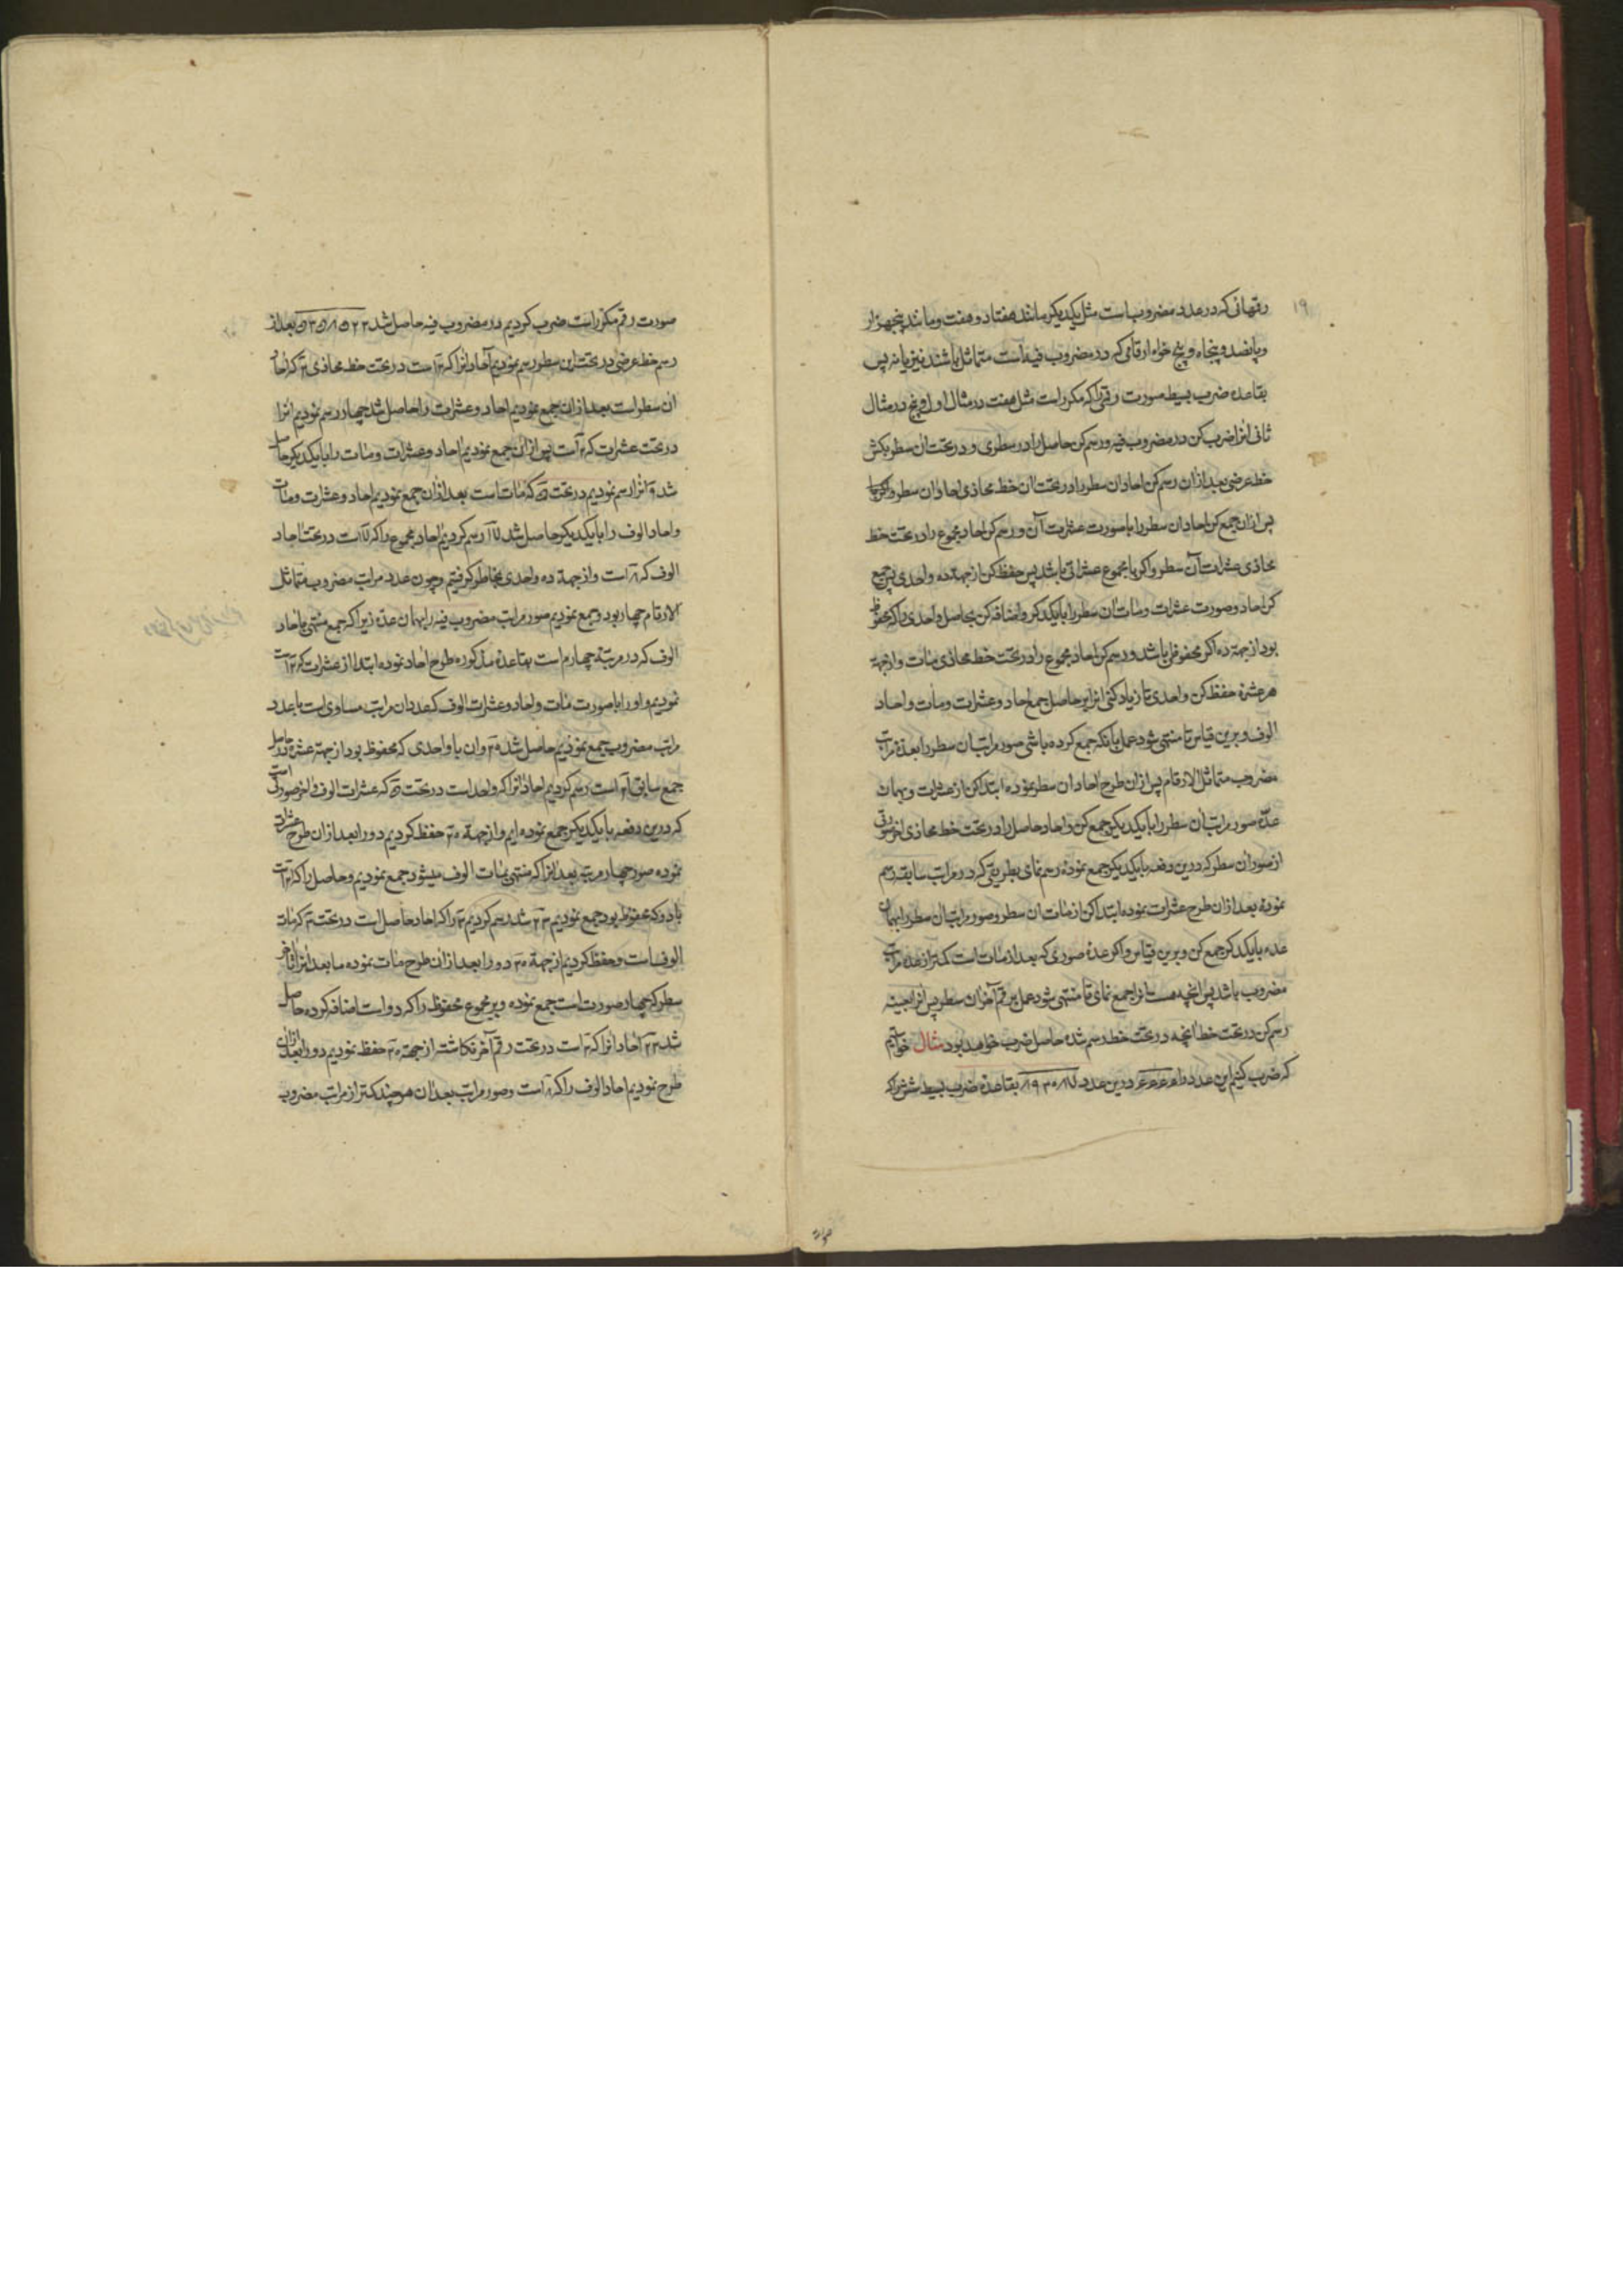 ۱۹
رقمهائی که در عدد مضروب است مثل یکدیکر مانند هفتاد و هفت و مانند پنجهزار
و پانصد و پنجاه و پنج خواه ارقامی که در مضروب فیه است متماثل باشند نیز یا نه پس
بقاعده ضرب بسیط صورت رقمی را که مکرر است مثل هفت در مثال اول و پنج در مثال
ثانی انرا ضرب کن در مضروب فیه و رسم کن حاصل را در سطری و در تحت ان سطر بکش
خط عرضی بعد از ان رسم کن احاد ان سطر را در تحت ان خط محاذی احاد ان سطر
پس ازان جمع کن احاد ان سطر را با صورت عشرات آن و رسم کن احاد مجموع را در تحت خط
محاذی عشرات آن سطر و اکر با مجموع عشراتی باشد پس حفظ کن از جهة ده واحدی پس جمع
کن احاد و صورت عشرات و مئات ان سطر را با یکدیکر و اضافه کن بحاصل واحدی را که محفوظ
بود از جهة ده اکر محفوظی باشد و رسم کن احاد مجموع را در تحت خط محاذی مئات و از جهة
هر عشره حفظ کن واحدی تا زیاد کنی انرا بر حاصل جمع احاد و عشرات و مئات و احاد
الوف و برین قیاس تا منتهی شود عمل بانکه جمع کرده باشی صور مراتب ان سطر را بعدة مراتب
مضروب متماثل الارقام پس ازان طرح احاد ان سطر نموده ابتدا کن از عشرات و بهمان
عدّه صور مراتب ان سطر را با یکدیکر جمع کن و احاد حاصل را در تحت خط محاذی اخر رقمی
از صور ان سطر که درین دفعه با یکدیکر جمع نموده رسم نمای بطریقی که در مراتب سابقه رسم
نموده بعد ازان طرح عشرات نموده ابتدا کن از مئات ان سطر و صور مراتب ان سطر را بهمان
عده با یکدیکر جمع کن و برین قیاس و اکر عدهٔ صوری که بعد از مئات است کمتر از عده مراتب
مضروب باشد پس انچه هست انرا جمع نمای تا منتهی شود عمل بر رقم آخر ان سطر پس انرا بعینه
رسم کن در تحت خط انچه در تحت خط رسم شده حاصل ضرب خواهد بود مثال خواستیم
که ضرب کنیم این عدد را ۶۶۶۶ درین عدد بقاعدهٔ ضرب بسیط شش را که
صورت رقم مکرر است ضرب کردیم در مضروب فیه حاصل شد بعد از
رسم خط عرضی در تحت این سطور رسم نمودیم آحاد انرا که ۲ است در تحت خط محاذی ۲ که احاد
ان سطر است بعد ازان جمع نمودیم احاد و عشرات را حاصل شد چهار رسم نمودیم انرا
در تحت عشرات که ۲ است پس ازان جمع نمودیم احاد و عشرات و مئات را با یکدیکر حاصل
شد ۹ انرا رسم نمودیم در تحت ۵ که مئات است بعد ازان جمع نمودیم احاد و عشرات و مئات
و احاد الوف را با یکدیکر حاصل شد ۱۷ رسم کردیم احاد مجموع را که ۷ است در تحت احاد
الوف که ۸ است و از جهة ده واحدی بخاطر کرفتیم و چون عدد مراتب مضروب متماثل
الارقام چهار بود و جمع نمودیم صور مراتب مضروب فیه را بهمان عدّه زیرا که جمع منتهی باحاد
الوف که در مرتبهٔ چهارم است بقاعدهٔ مذکوره طرح احاد نموده ابتدا از عشرات که ۲ است
نمودیم و او را با صورت مئات و احاد و عشرات الوف که عدد ان مراتب مساوی است با عدد
مراتب مضروب جمع نمودیم حاصل شد ۲۰ وان با واحدی که محفوظ بود از جهة عشره در حاصل
جمع سابق ۲۱ است رسم کردیم احاد انرا که واحد است در تحت ۵ که عشرات الوف و اخر صورتی است
که درین دفعه با یکدیکر جمع نموده ایم و از جهة ۲۰ حفظ کردیم دو را بعد ازان طرح عشرات
نموده صور چهار مرتبه بعد انرا که منتهی بمئات الوف میشود جمع نمودیم و حاصل را که ۲۱ است
با دو که محفوظ بود جمع نمودیم ۲۳ شد رسم کردیم ۳ را که احاد حاصل است در تحت ۳ که مئات
الوف است و حفظ کردیم از جهة ۲۰ دو را بعد ازان طرح مئات نموده ما بعد انرا تا آخر
سطر که چهار صورت است جمع نموده و بر مجموع محفوظ را که دو است اضافه کرده حاصل
شد ۲۳ احاد انرا که ۳ است در تحت رقم آخر نکاشته از جهة ۲۰ حفظ نمودیم دو را بعد ازان
طرح نمودیم احاد الوف را که ۸ است و صور مراتب بعد ان هر چند کمتر از مراتب مضروب